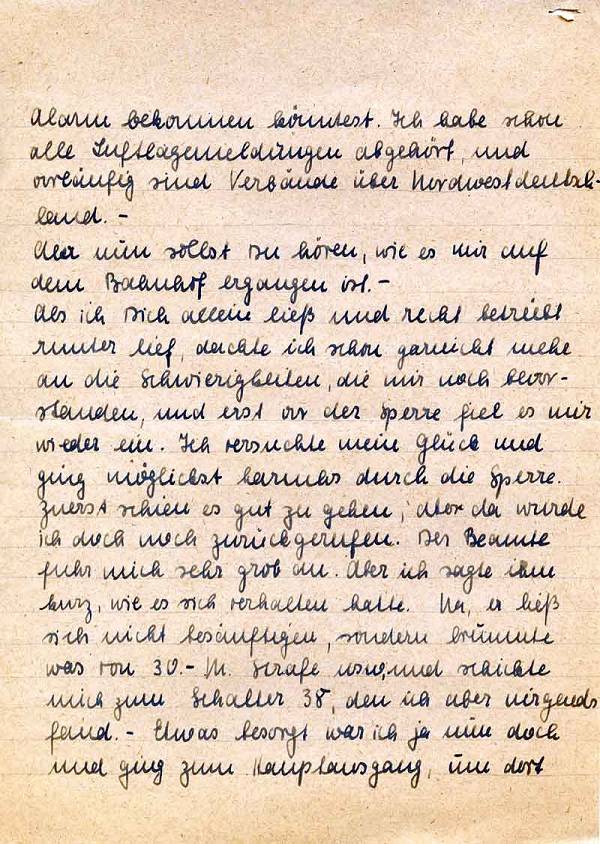 Alarm bekommen könntest. Ich habe schon
alle Luftlagemeldungen abgehört, und
vorläufig sind Verbände über Nordwestdeutsch-
land. -
Aber nun sollst Du hören, wie es mir auf
dem Bahnhof ergangen ist. -
Als ich Dich alleine ließ und recht betrübt
runter lief, dachte ich schon garnicht mehr
an die Schwierigkeiten, die mir noch bevor-
standen, und erst vor der Sperre fiel es mir
wieder ein. Ich versuchte mein Glück und
ging möglichst harmlos durch die Sperre.
Zuerst schien es gut zu gehen, aber da wurde
ich doch noch zurückgerufen. Der Beamte
fuhr mich sehr grob an. Aber ich sagte ihm
kurz, wie es sich verhalten hatte. Na, er ließ
sich nicht besänftigen, sondern brummte
was von 30.- M. Strafe usw. und schickte
mich zum Schalter 38, den ich aber nirgends
fand. - Etwas besorgt war ich ja nun doch
und ging zum Hauptausgang, um dort